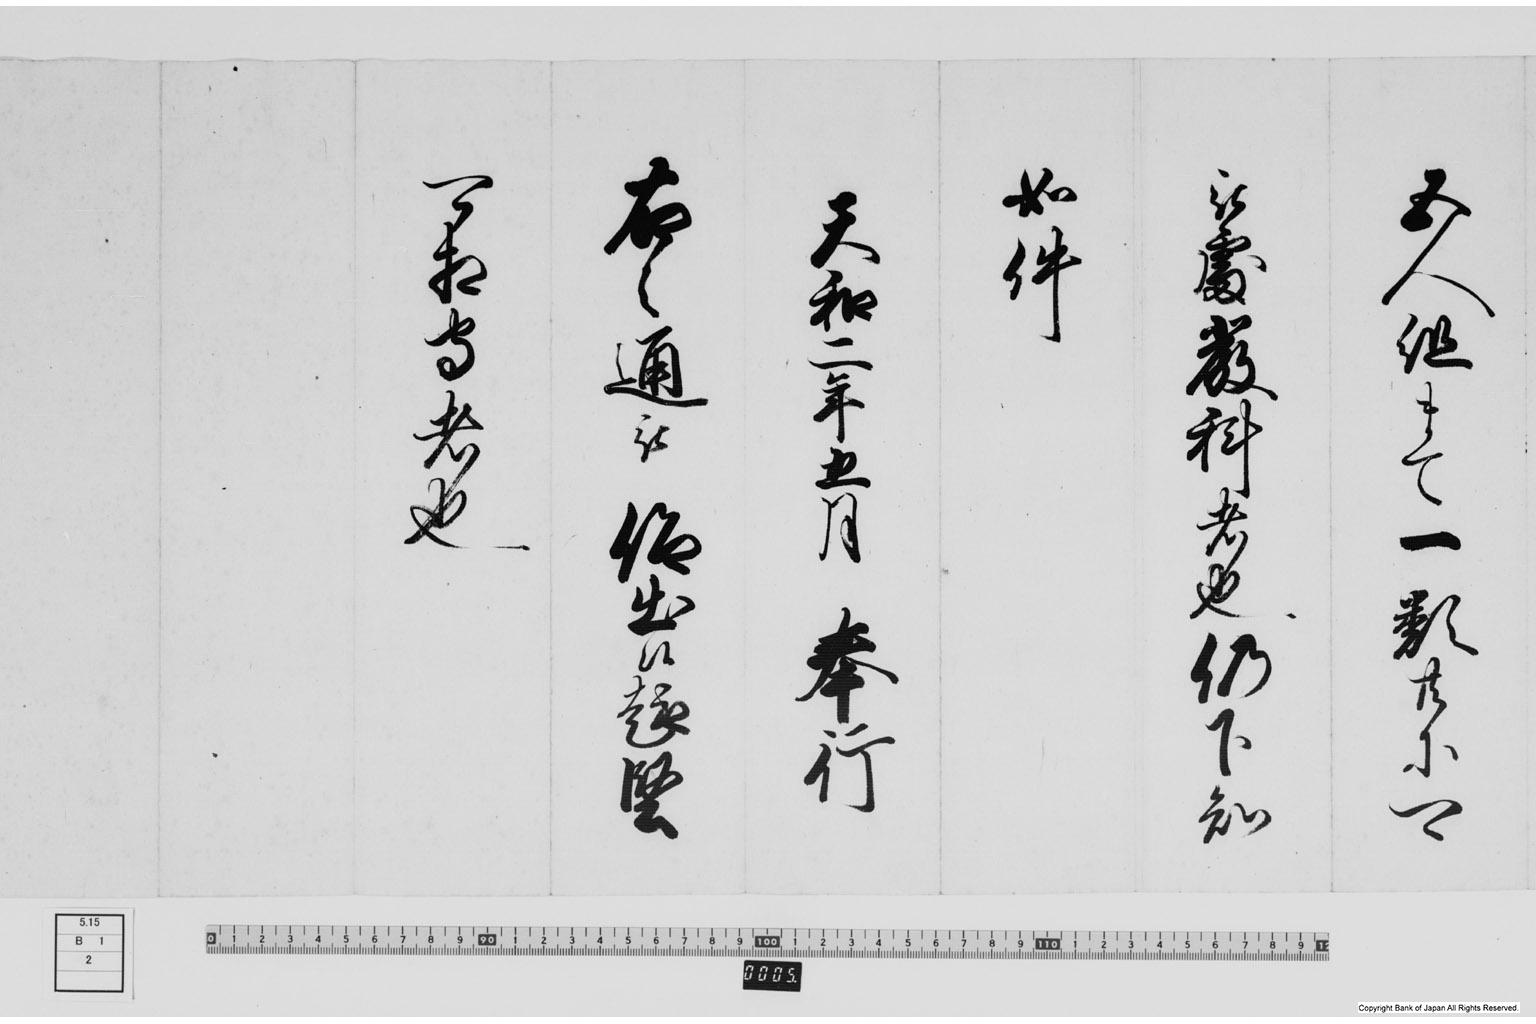 五人組まて一類共ニ可
被處嚴科者也仍下知
如件
天和二年五月 奉行
右之通被 仰出候趣堅
可相守者也
5.15
B 1
2
0 1 2 3 4 5 6 7 8 9 90 1 2 3 4 5 6 7 8 9 100 1 2 3 4 5 6 7 8 9 110 1 2 3 4 5 6 7 8 9 12
0005.
Copyright Bank of Japan All Rights Reserved.